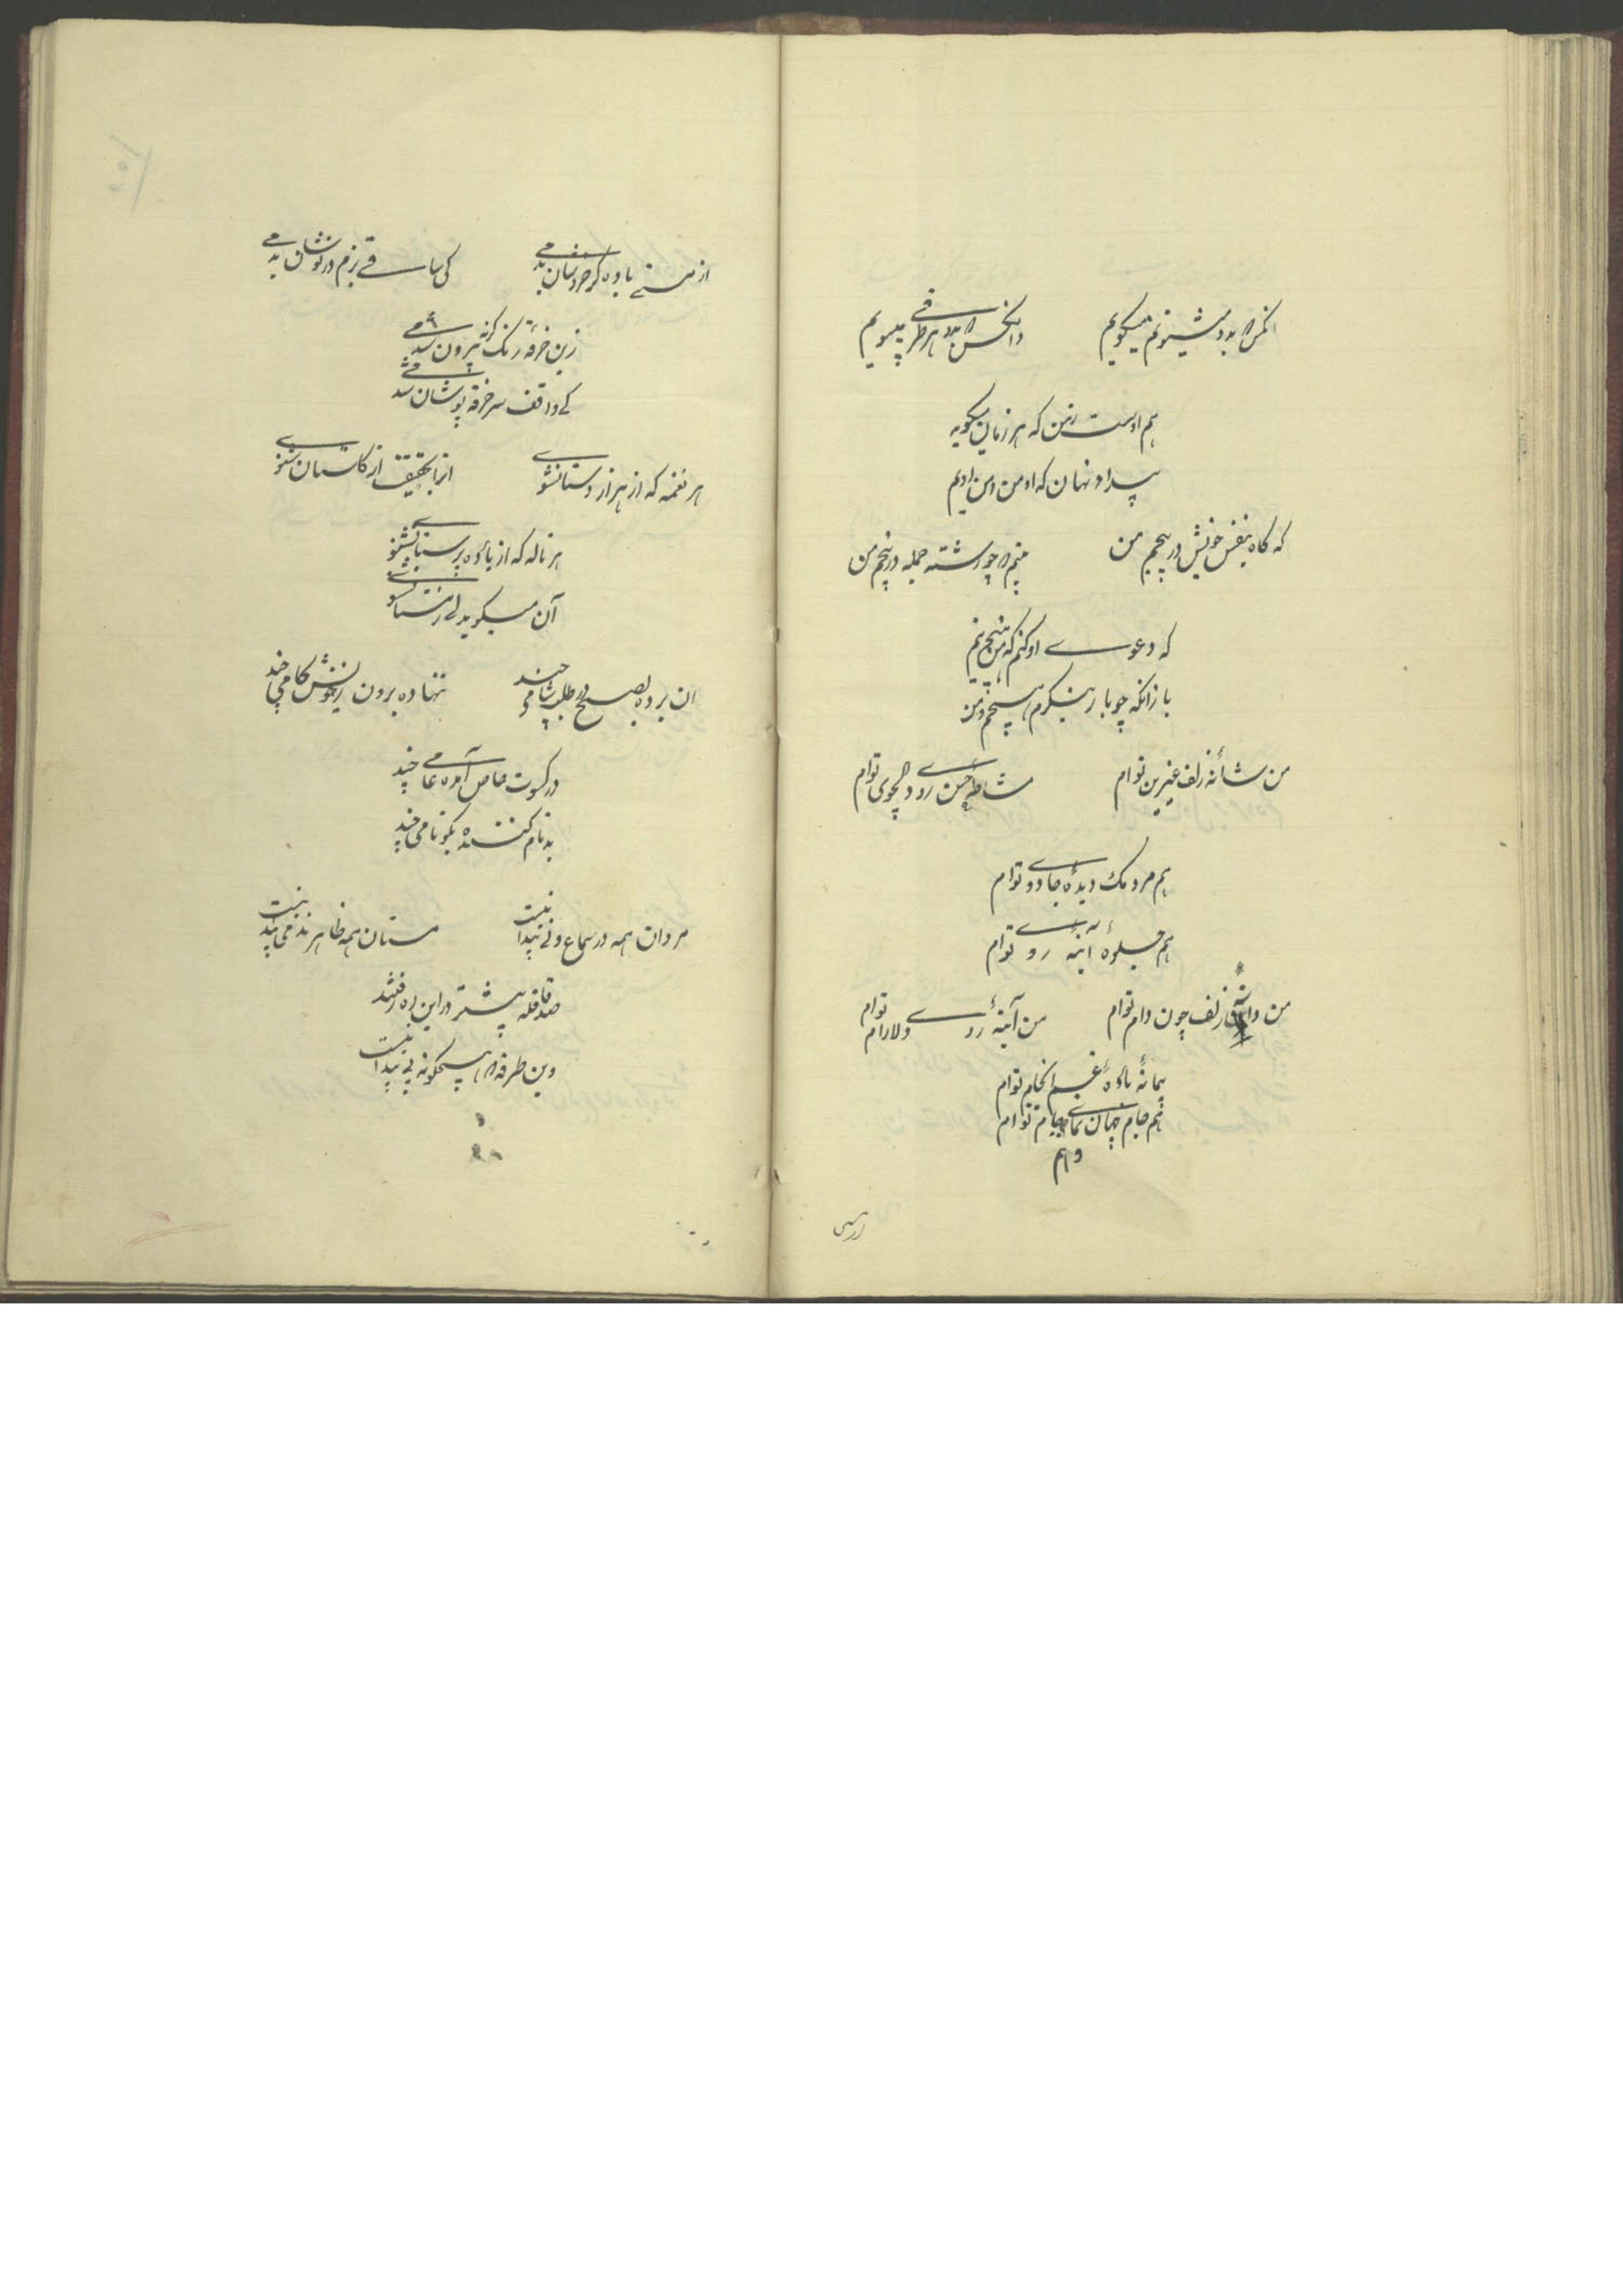 آنکس که بدو میشنوم میگویم
وانکس که بدو هر طرفی میپویم
هم اوست زمن که هر زمان میگوید
پیدا و نهان که او من و من اویم
که گاه بنفس خویش در پیچم من
بینم که چو رشته جمله در پیچم من
که دعوی او کنم که من
باز آنکه چو باز بنگرم هیچم من
من شانه زلف عنبرین توام
مشاطه حسن روی دلجوی توام
هم مردمک دیدهٔ جادوی توام
هم جلوهٔ آینهٔ روی توام
من دانه زلف چون دام توام
من آینهٔ روی دلارام توام
پیمانهٔ بادهٔ غم انجام توام
هم جام جهان نمای جام توام
وهم
از مستی باده گر خروشان بدمی
کی ساقی بزم درنوشان بدمی
زین خرقهٔ رنگ گرنه بیرون شدمی
کی واقف سر خرقه پوشان شدمی
هر نغمه که از هزار دستان شنوی
آنرا بحقیقت از گلستان شنوی
هر ناله که از بادهٔ پرستان شنوی
آن میگوید ولی زمستان شنوی
آن برده بصبح در طلب شامی چند
ننهاده برون زخویش گامی چند
در کسوت خاص آمده عامی چند
بدنام کنندهٔ نکونامی چند
مردان همه در سماع و نی پیدا نیست
مستان همه ظاهرند می پیدا نیست
صد قافله پیشتر در این ره رفتند
وین طرفه که هیچگونه پی پیدا نیست